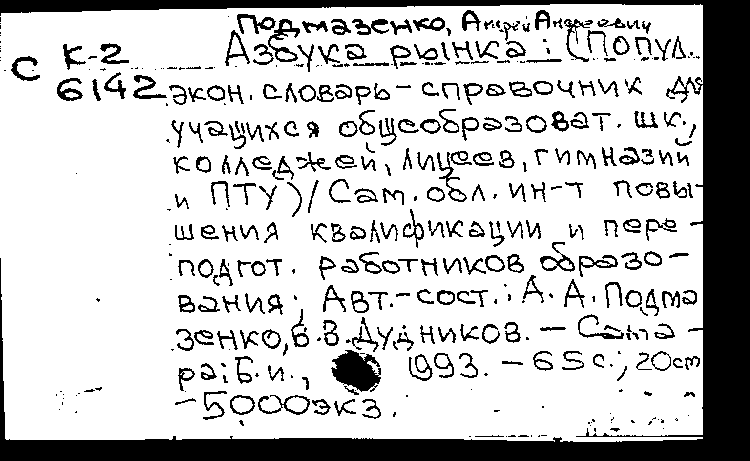 Подмазенко, Андрей Андреевич
С К-2 Азбука рынка : (Попул.
6142 экон. словарь-справочник для
учащихся общеобразоват. шк.,
колледжей, лицеев, гимназий
и ПТУ) / Сам. обл. ин-т повы-
шения квалификации и пере-
подгот. работников образо-
вания; Авт.-сост.: А. А. Подма
зенко, Б. В. Дудников. - Сама-
ра: Б. и., 1993. - 65 с.; 20 cm
- 5000 экз.